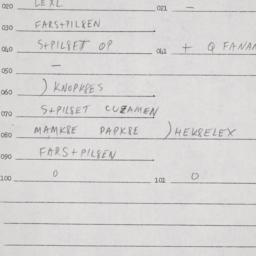 020 LEXL 021 —
030 FARS+PILSEN
040 S+PILSET OP 041 + Q FANAN
050 —
060 ) KNOPKSES
070 S+PILSET CUZAMEN
080 MAMKSE PAPKSE ) HEKSELEX
090 FARS+PILSEN
100 0 101 0